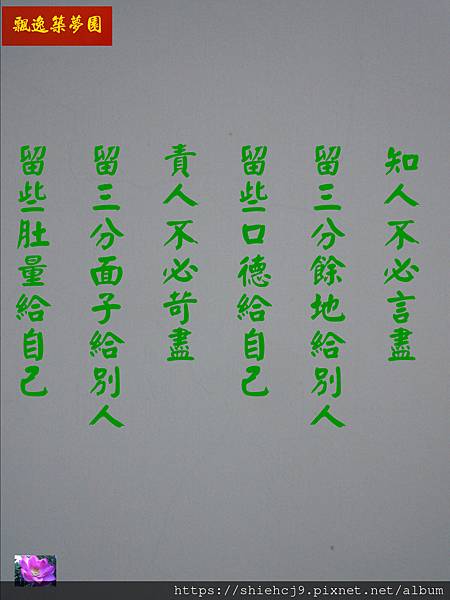 飄逸築夢園
知人不必言盡
留三分餘地給別人
留些口德給自己
責人不必苛盡
留三分面子給別人
留些肚量給自己
https://shiehcj9.pixnet.net/album